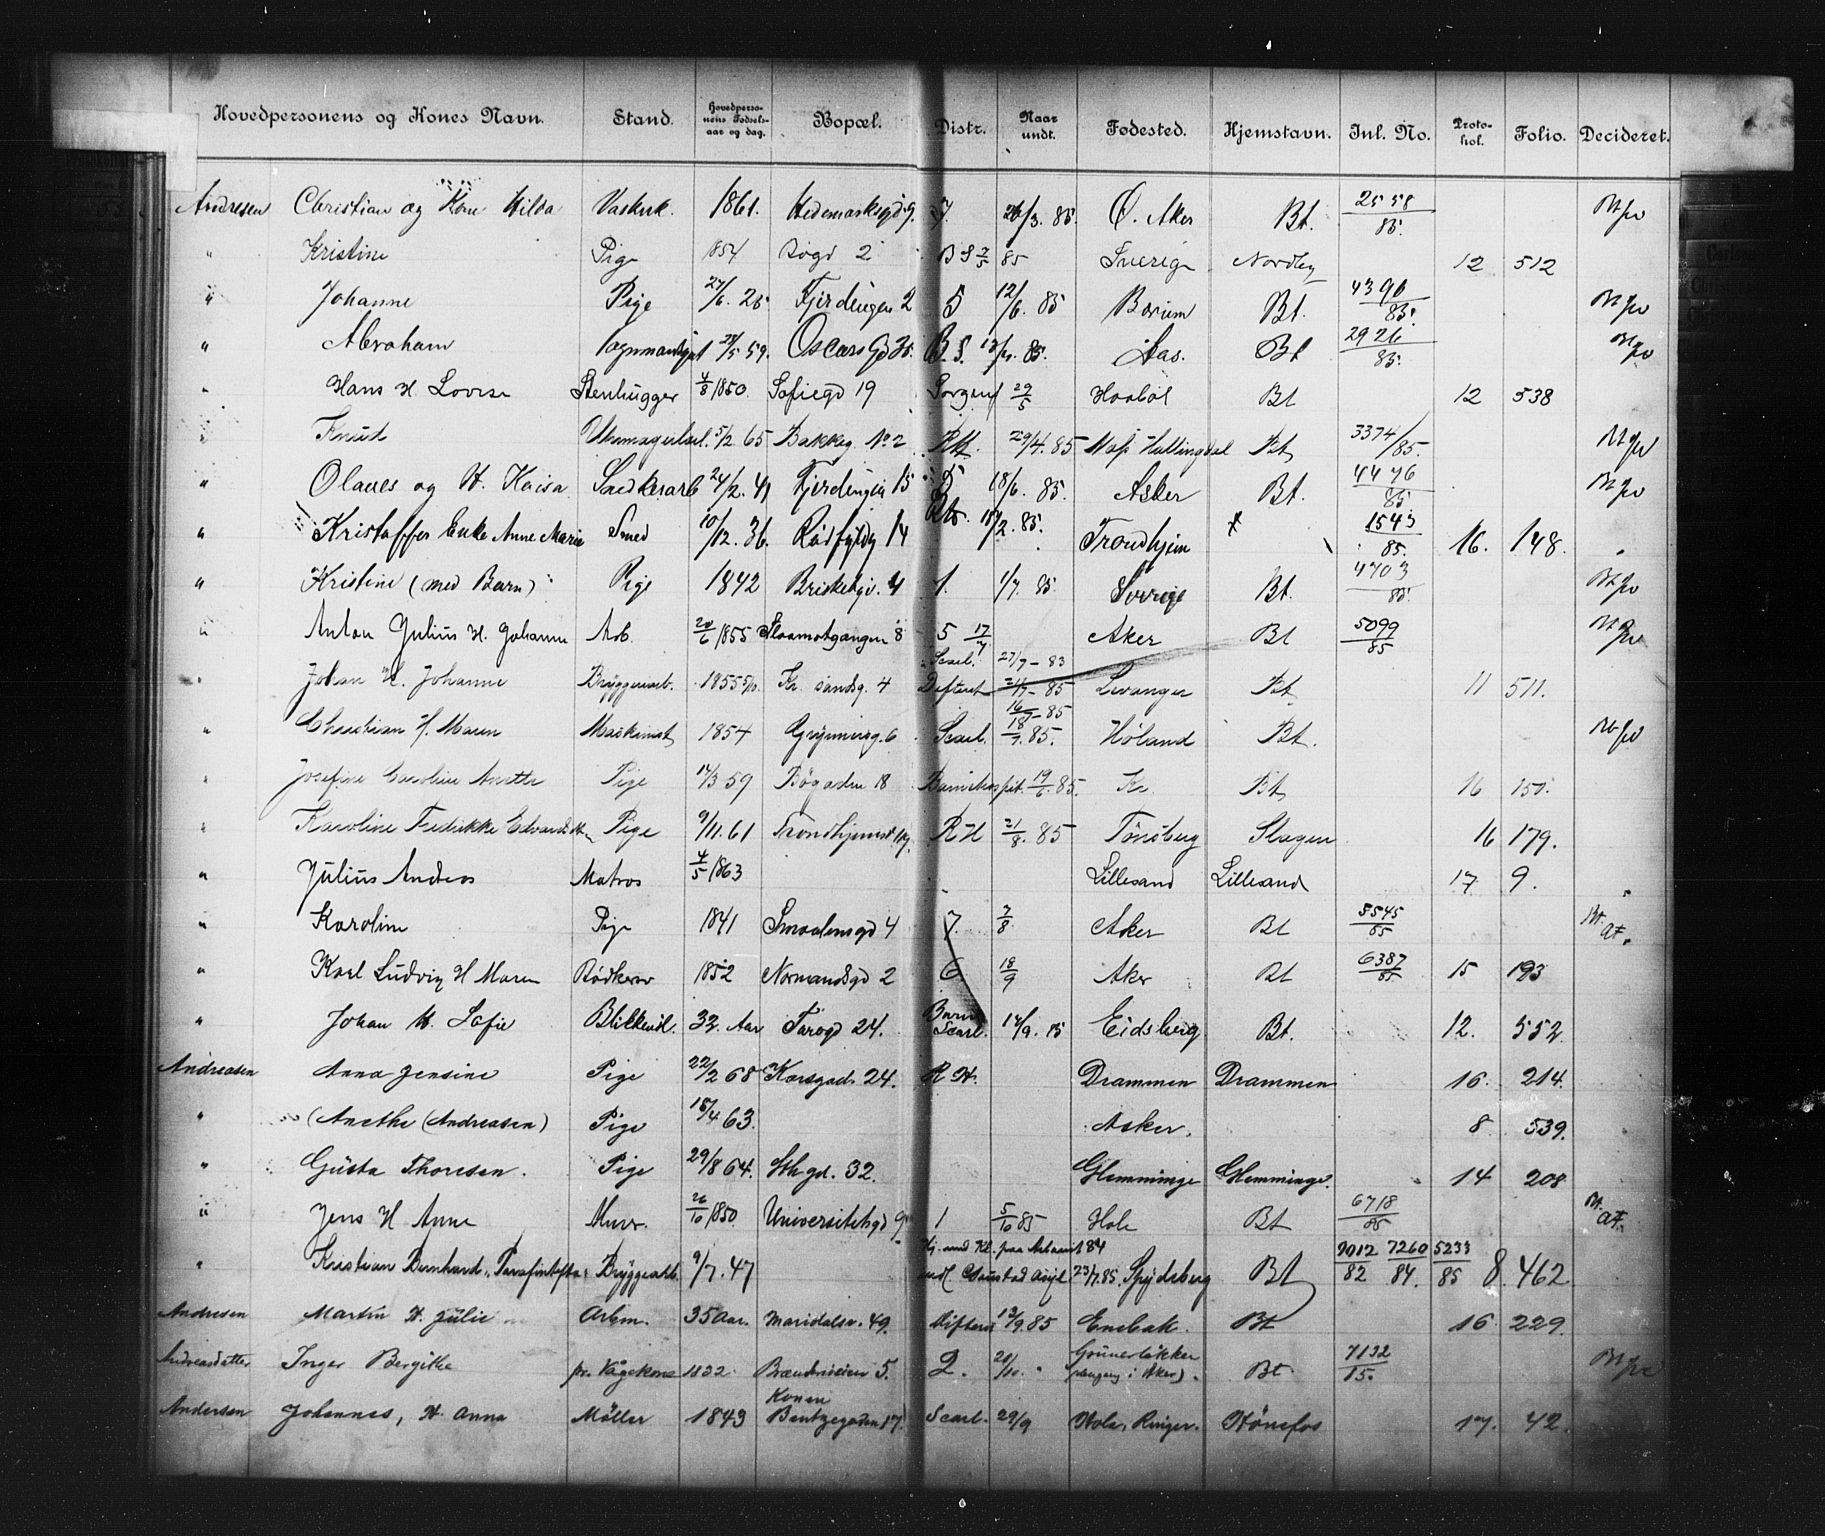 Hovedpersonens og Kones Navn. Stand. Hovedpersonens Fødselsaar og dag. Bopæl. Distr. Naar undt. Fødested. Hjemstavn. Inl. No. Protokol. Folio. Decideret.
Andresen Christian og Kone Hilda 1861. Hedemarksgd 9. 7 26/3. 85. Ø. Aker Bt. 2558/85.
" Kristine Pige 1854 2 B S 7/5 85 Sverige Nordby 12 512
" Johanne Pige 27/6. 25 Fjerdingen 2 5 12/6. 85 Bærum Bt. 4390/85.
" Abraham 59. Oscars Gd 35. B. S. 85. Aas. Bt 2926/85.
" Hans H Lovise Stenhugger 4/8 1850. Sofiegd 19 Sorgenf 29/5 Haabøl Bt 12 538
" Knud 5/2 65 Bakkeg. No 2 RH. 29/4. 85 Hallingdal Bt 3374/85.
" Olaves og H. Kaisa Snedkerarb 24/2. 41 Fjerdingen 15 5 18/6. 85. Asker Bt. 4476/85
" Kristoffer Enke Anne Marie Smed 10/12. 36. Rødfyldg 14 85. Trondhjem 1543/85. 16. 148.
" Kristine (med Barn) Pige 1842 Briskebyv. 4 1. 1/7. 85. Sverige Bt. 4703/85.
" Anton Julius H. Johanne Arb. 20/6 1855 8 5 17/7 Aker Bt 5099/85
" Johan H. Johanne Bryggerarb. 1855 Kr. sandsg. 4 Scarl. 27/7 - 83 Difterit 85 Levanger Bt 11 511.
" Christian H. Maren Maskinist 1854 6 Scarl. 16/7 - 85 18/7. 85. Høland Bt.
" Josefine Caroline Anette Pige 59 Bøgaden 18 19/6. 85. Kr. Bt 16 150.
" Karoline Fredrikke Pige 9/11. 61 RH 21/8. 85 Tønsberg Slagen 16 179.
" Julius Andreas Matros 4/5 1863 Lillesand Lillesand 17 9.
" Karoline Pige 1841 Smaalensgd 4 7. 7/8 Aker Bt
" Karl Ludvig H Maren Rødkerar 1852 Normandsgd 2 6 18/9 Aker Bt 6387/85 15 193
" Johan H. Sofie 32. Aar Torvgd 24. Scarl. Eidsberg Bt. 12. 552
Andreasen Anna Jensine Pige 22/2 68 Korsgad. 24. R H. Drammen Drammen 16. 214.
" (Anethe (Andreasen) Pige 18/4 63. Asker. 8 539.
" Gusta Thoresen. Pige 29/8 64. Sthgd. 32. Glemminge Glemminge. 14 208
" Jens H Anne Murer. 26/10 1850. Universitetsgd 9 1 5/10 85 Hole Bt 6718/85
" Kristian Bernhard, Bryggearb. 9/7. 47 Gaustad Asyl 23/7. 85. Spydeberg Bt 7260/84. 5233/85 8. 462
Andresen Martin H. Julie Arbm. 35 Aar. Maridalsv. 49. Difterit 13/9. 85 Enebak. Bt 16 229.
Andreasdatter Inger Bergithe 1832. 5. 2. 20/10. " Grünerløkker Bt. 7132/15.
Andersen Johannes, H. Anna Møller 1843 Konen Bentzegaden 17. Scarl. 29/9 Hole, Ringer. Hønefos 17. 42.